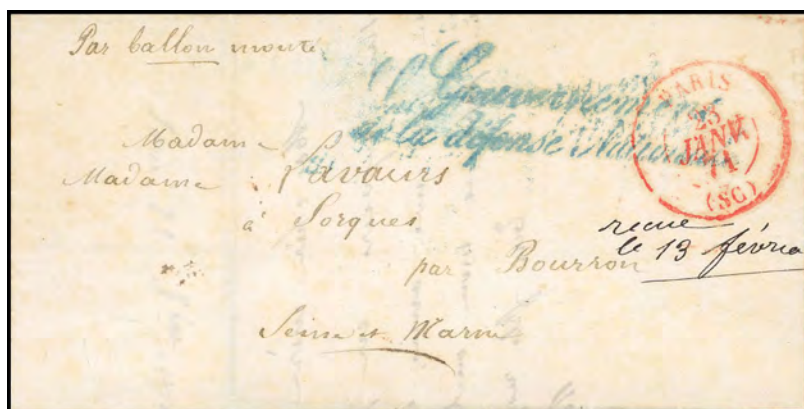 Par ballon monté
l Gouvernement
de la défense Nationale
PARIS
23
JANV.
71
(SC)
Madame
Madame Lavaurs
à Sorques
reçue
le 13 février
par Bourron
Seine et Marne